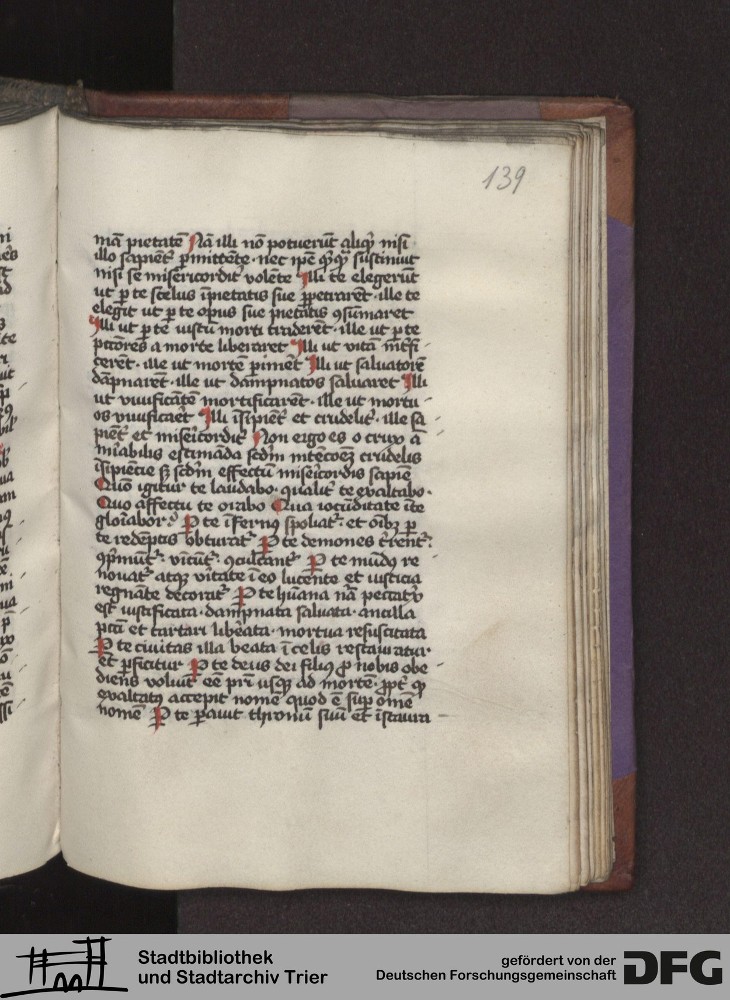 139
mā pietatē Nā illi nō potuerūt aliqͥd nisi
illo sapient᷑ ꝑmittēte · nec ipē qͥcqͣ sustinuit
nisi se misericordit᷑ volēte Illi te elegerūt
ut ꝑ te scelus īpietatis sue ꝑpetrarēt · ille te
elegit ut ꝑ te opus sue pietatis ꝯsumaret
Illi ut ꝑ tē iustū morti traderēt · ille ut ꝑ te
pctōres a morte liberaret Illi ut vitā int̄fi
cerēt · ille ut mortē ꝑimēt Illi ut saluatorē
dāpnarēt · ille ut dāmpnatos saluaret Illi
ut viuificātē mortificarēt · ille ut mortu
os viuificaret Illi īsipient᷑ et crudelit᷑ · ille sa
pient᷑ et misericordit᷑ Non ergo es o crux ā
mirabilis estimāda scdm intēcoēꝫ crudelis
īsipiēcie sꝫ scdm effectū misericordis sapiē
Quō igitur te laudabo · qualit᷑ te exaltabo ·
Quo affectu te orabo Qua iocūditate ī te
gloriabor ? Ꝑ te īfernꝰ spoliat᷑ · et oībꝫ ꝑ
te redēptis obturat᷑ Ꝑ te demones t̄rent᷑ :
ꝯpͥmūt᷑ : vīcūt᷑ : ꝯculcant᷑ Ꝑ te mūdꝰ re
nouat᷑ atqꝫ v̄itate ī eo lucente et iusticia
regnāte decorat᷑ Ꝑ te hūana nā peccatͥx
est iustificata · dampnata saluata · ancilla
pcti et tartari liberata · mortua resuscitata
Ꝑ te ciuitas illa beata ī celis restauratur
et ꝑficitur Ꝑ te deus dei filiꝰ ꝓ nobis obe
diens voluit eē pri usqꝫ ad mortē · ꝓpt᷑ qͩ
exaltatꝰ accepit nomē quod ē suꝑ omē
nomē Ꝑ te ꝑauit thronū suū et īstaura
Stadtbibliothek
und Stadtarchiv Trier
gefördert von der
Deutschen Forschungsgemeinschaft
DFG